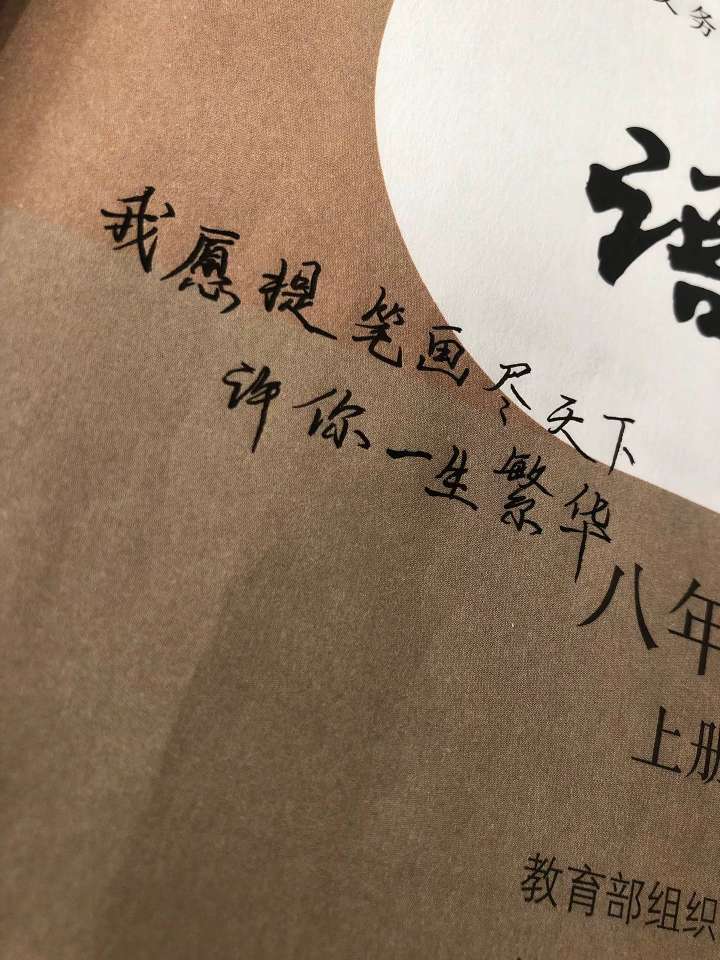 务
语
我愿提笔画尽天下
许你一生繁华
八年
上册
教育部组织